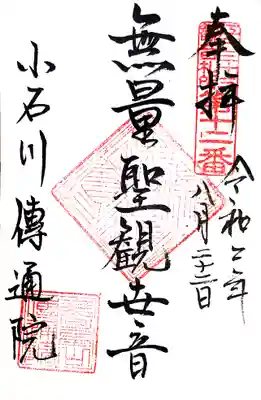 奉拝
第十二番
令和二年
八月二十二日
無量聖観世音
小石川傳通院